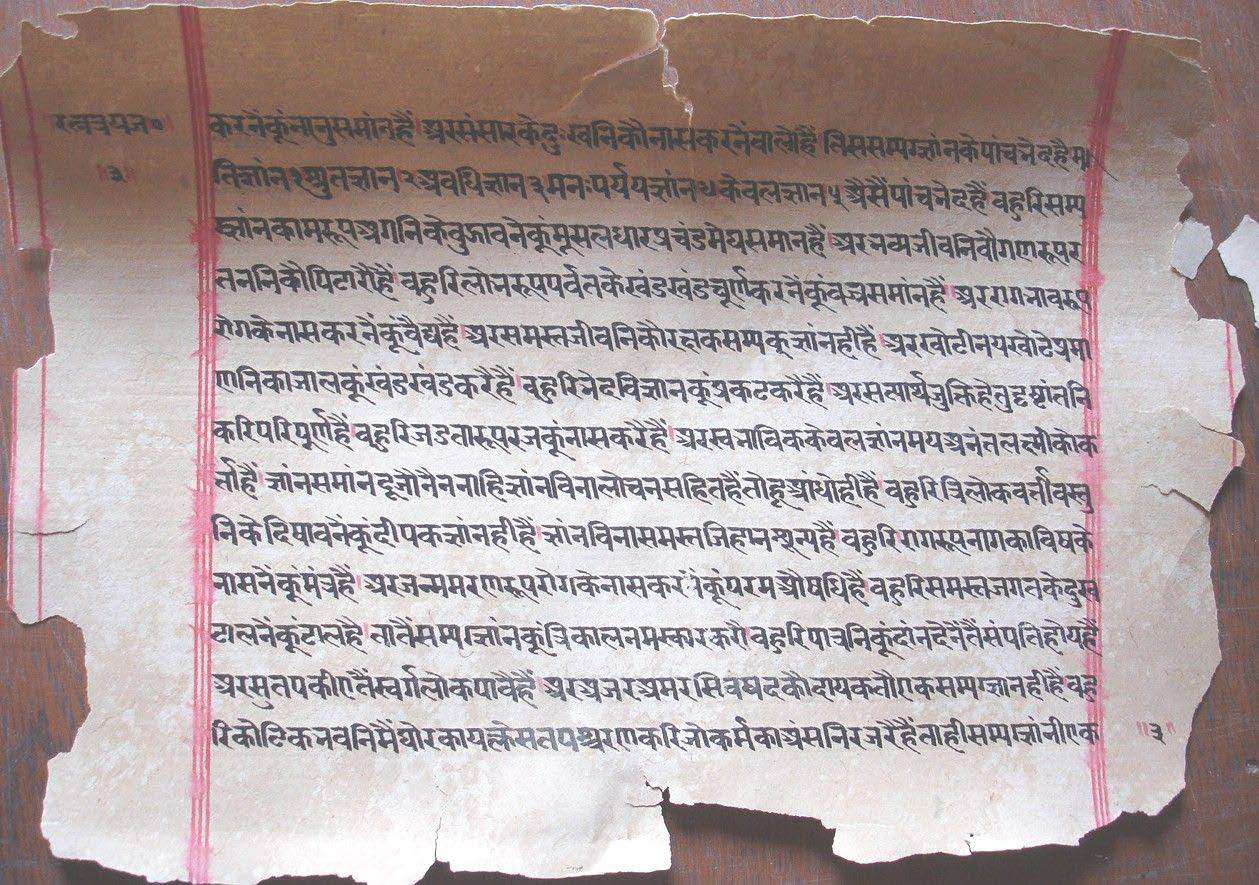 रत्नत्रयज॰
॥३॥
करनैंकूंनानुसमांनहैं।अरसंसारकेदुःखनिकौनासकरनैंवालोहैं।तिससम्यग्ज्ञांनकेपांचभेदहैमा
तिज्ञांन१श्रुतज्ञान२अवधिज्ञान३मनःपर्ययज्ञांन४केवलज्ञान५अैसैंपांचभेदहैं।बहुरिसम्य
ज्ञांनकामरूपअगनिकेवुजावनेकूंमूसलधारप्रचंडमेघसमानहैं।अरभव्यजीवनिकौगणरूपर
तननिकौपिटारौहैं।बहुरिलोभरूपपर्वतकेखंडखंडचूर्णकरनैंकूंवज्रसमांनहैं।अररागभावरूप
रोगकेनासकरनैंकूंवैद्यहैं।अरसमस्तजीवनिकौरक्षकसम्यक्ज्ञांनहीहैं।अरखोटीनयखोटेप्रमा
णनिकाजालकूंखंडखंडकरैहैं।बहुरिभेदविज्ञानकूंप्रकटकरैहैं।अरसत्यार्थजुक्तिहेतुदृष्टांतनि
करिपरिपूर्णहैं।बहुरिजडतारूपरजकूंनासकरैहैं।अरस्वभाविककेवलज्ञांनमयअनंतलक्ष्मीकोक
र्ताहैं।ज्ञांनसमांनदूजौनैननाहिज्ञांनविनालोचनसहितहैंतोहूआंधोहीहैं।बहुरित्रिलोकवर्तीवस्तु
निकेदिषावनैंकूंदीपकज्ञांनहीहैं।ज्ञांनविनासमस्तजिहानशून्यहैं।बहुरिरागरूपनागकाविषके
नासनैंकूंमंत्रहैं।अरजन्ममरणरूपरोगकेनासकरनैंकूंपरमऔषधिहैं।बहुरिसमस्तजगतकेदुख
टालनैंकूंटालहै।तातैंसम्यग्ज्ञांनकूंत्रिकालनमस्कारकरौ।बहुरिपात्रनिकूंदांनदेनेतैंसंपतिहोयहैं
अरसुतपकीएतैंस्वर्गलोकपावैहैं।अरअजरअमरसिवपदकौदायकतौएकसम्यग्ज्ञानहीहैं।बहु
रिकोटिकभवनिमैंघोरकायक्लेसतपश्चरणकरिजोकर्मकाअंसनिरजरैहैंताहीसम्यग्ज्ञांनीएक
॥३॥